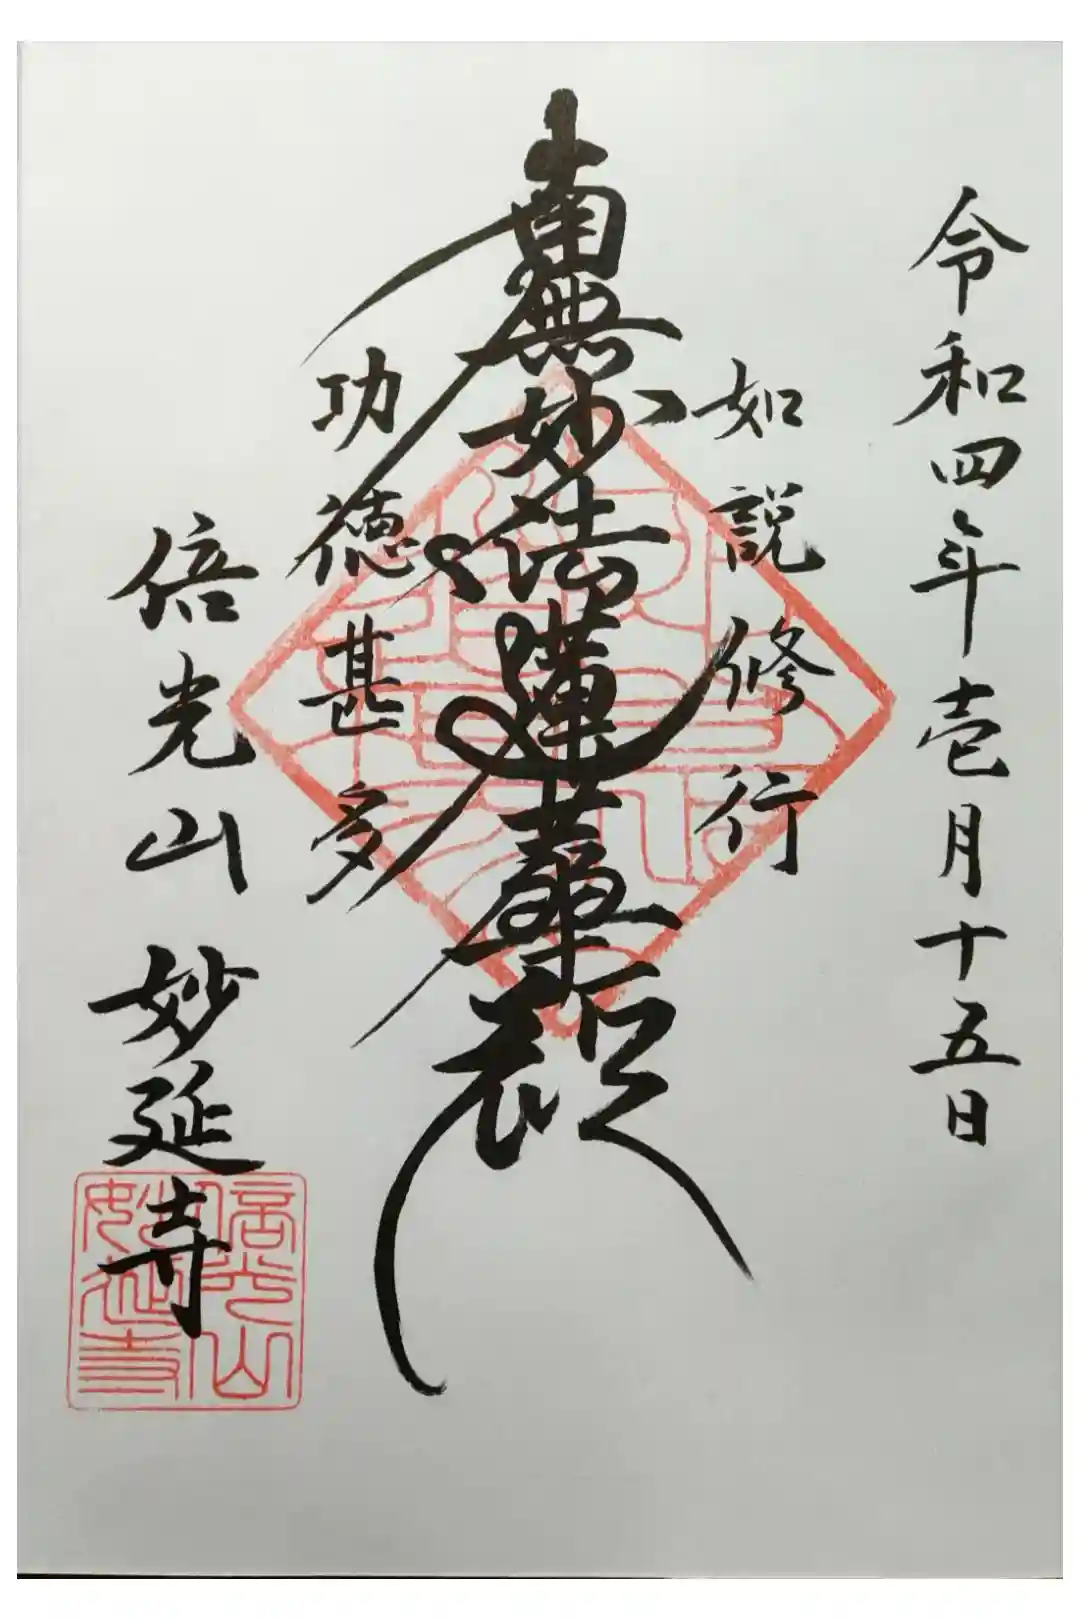 令和四年壱月十五日
如説修行
南無妙法蓮華経
功徳甚多
倍光山 妙延寺
倍光山
妙延寺